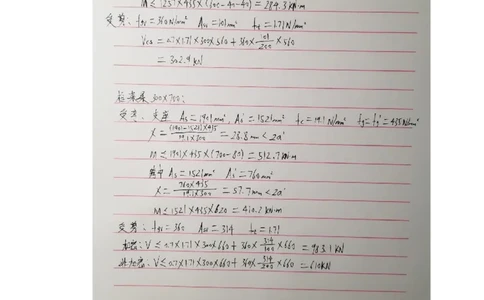 M≤1257×435×(600-40-40)=284.3kN·m
受剪: fyv=360N/mm² Asv=101mm² ft=1.71N/mm²
Vcs=0.7×1.71×300×560+360×101/200×560
=302.9kN
300×700:
受弯: 支座 As=1901mm², As'=1521mm² fc=19.1N/mm² fy=fy'=435N/mm²
X=(1901-1521)×435/19.1×300=28.8mm<2a'
M≤1901×435×(700-80)=512.7kN·m
跨中 As=1521mm² As'=760mm²
X=760×435/19.1×300=57.7mm<2a'
M≤1521×435×620=410.2kN·m
受剪: fyv=360 Asv=314 ft=1.71
加密: V≤0.7×1.71×300×660+360×314/100×660=983.1KN
非加密: V≤0.7×1.71×300×660+360×314/200×660=610KN